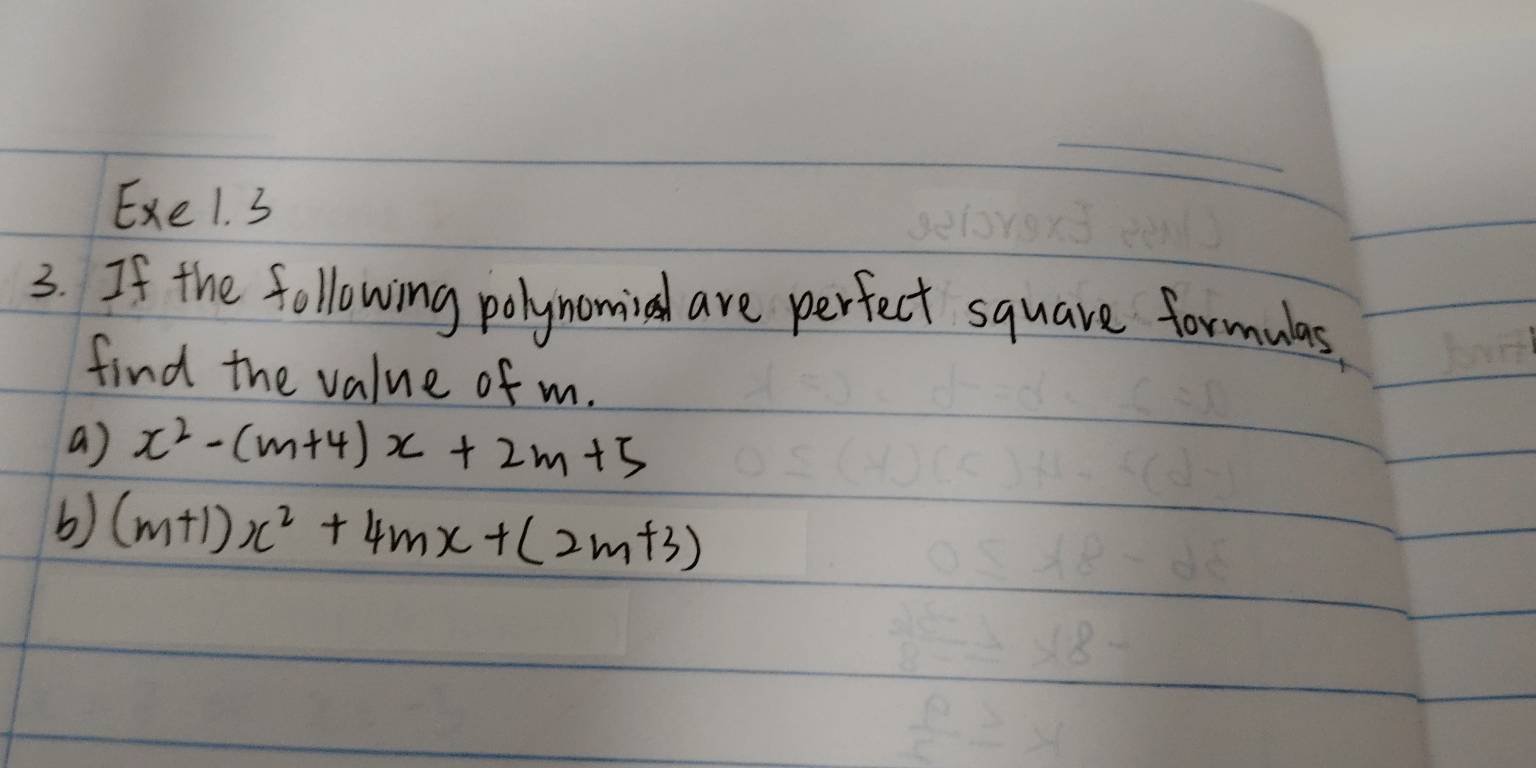 Exe 1.3
3. If the following polynomial are perfect square formulas,
find the value of m.
a) x² - (m+4) x + 2m + 5
b) (m+1)x² + 4mx + (2m+3)